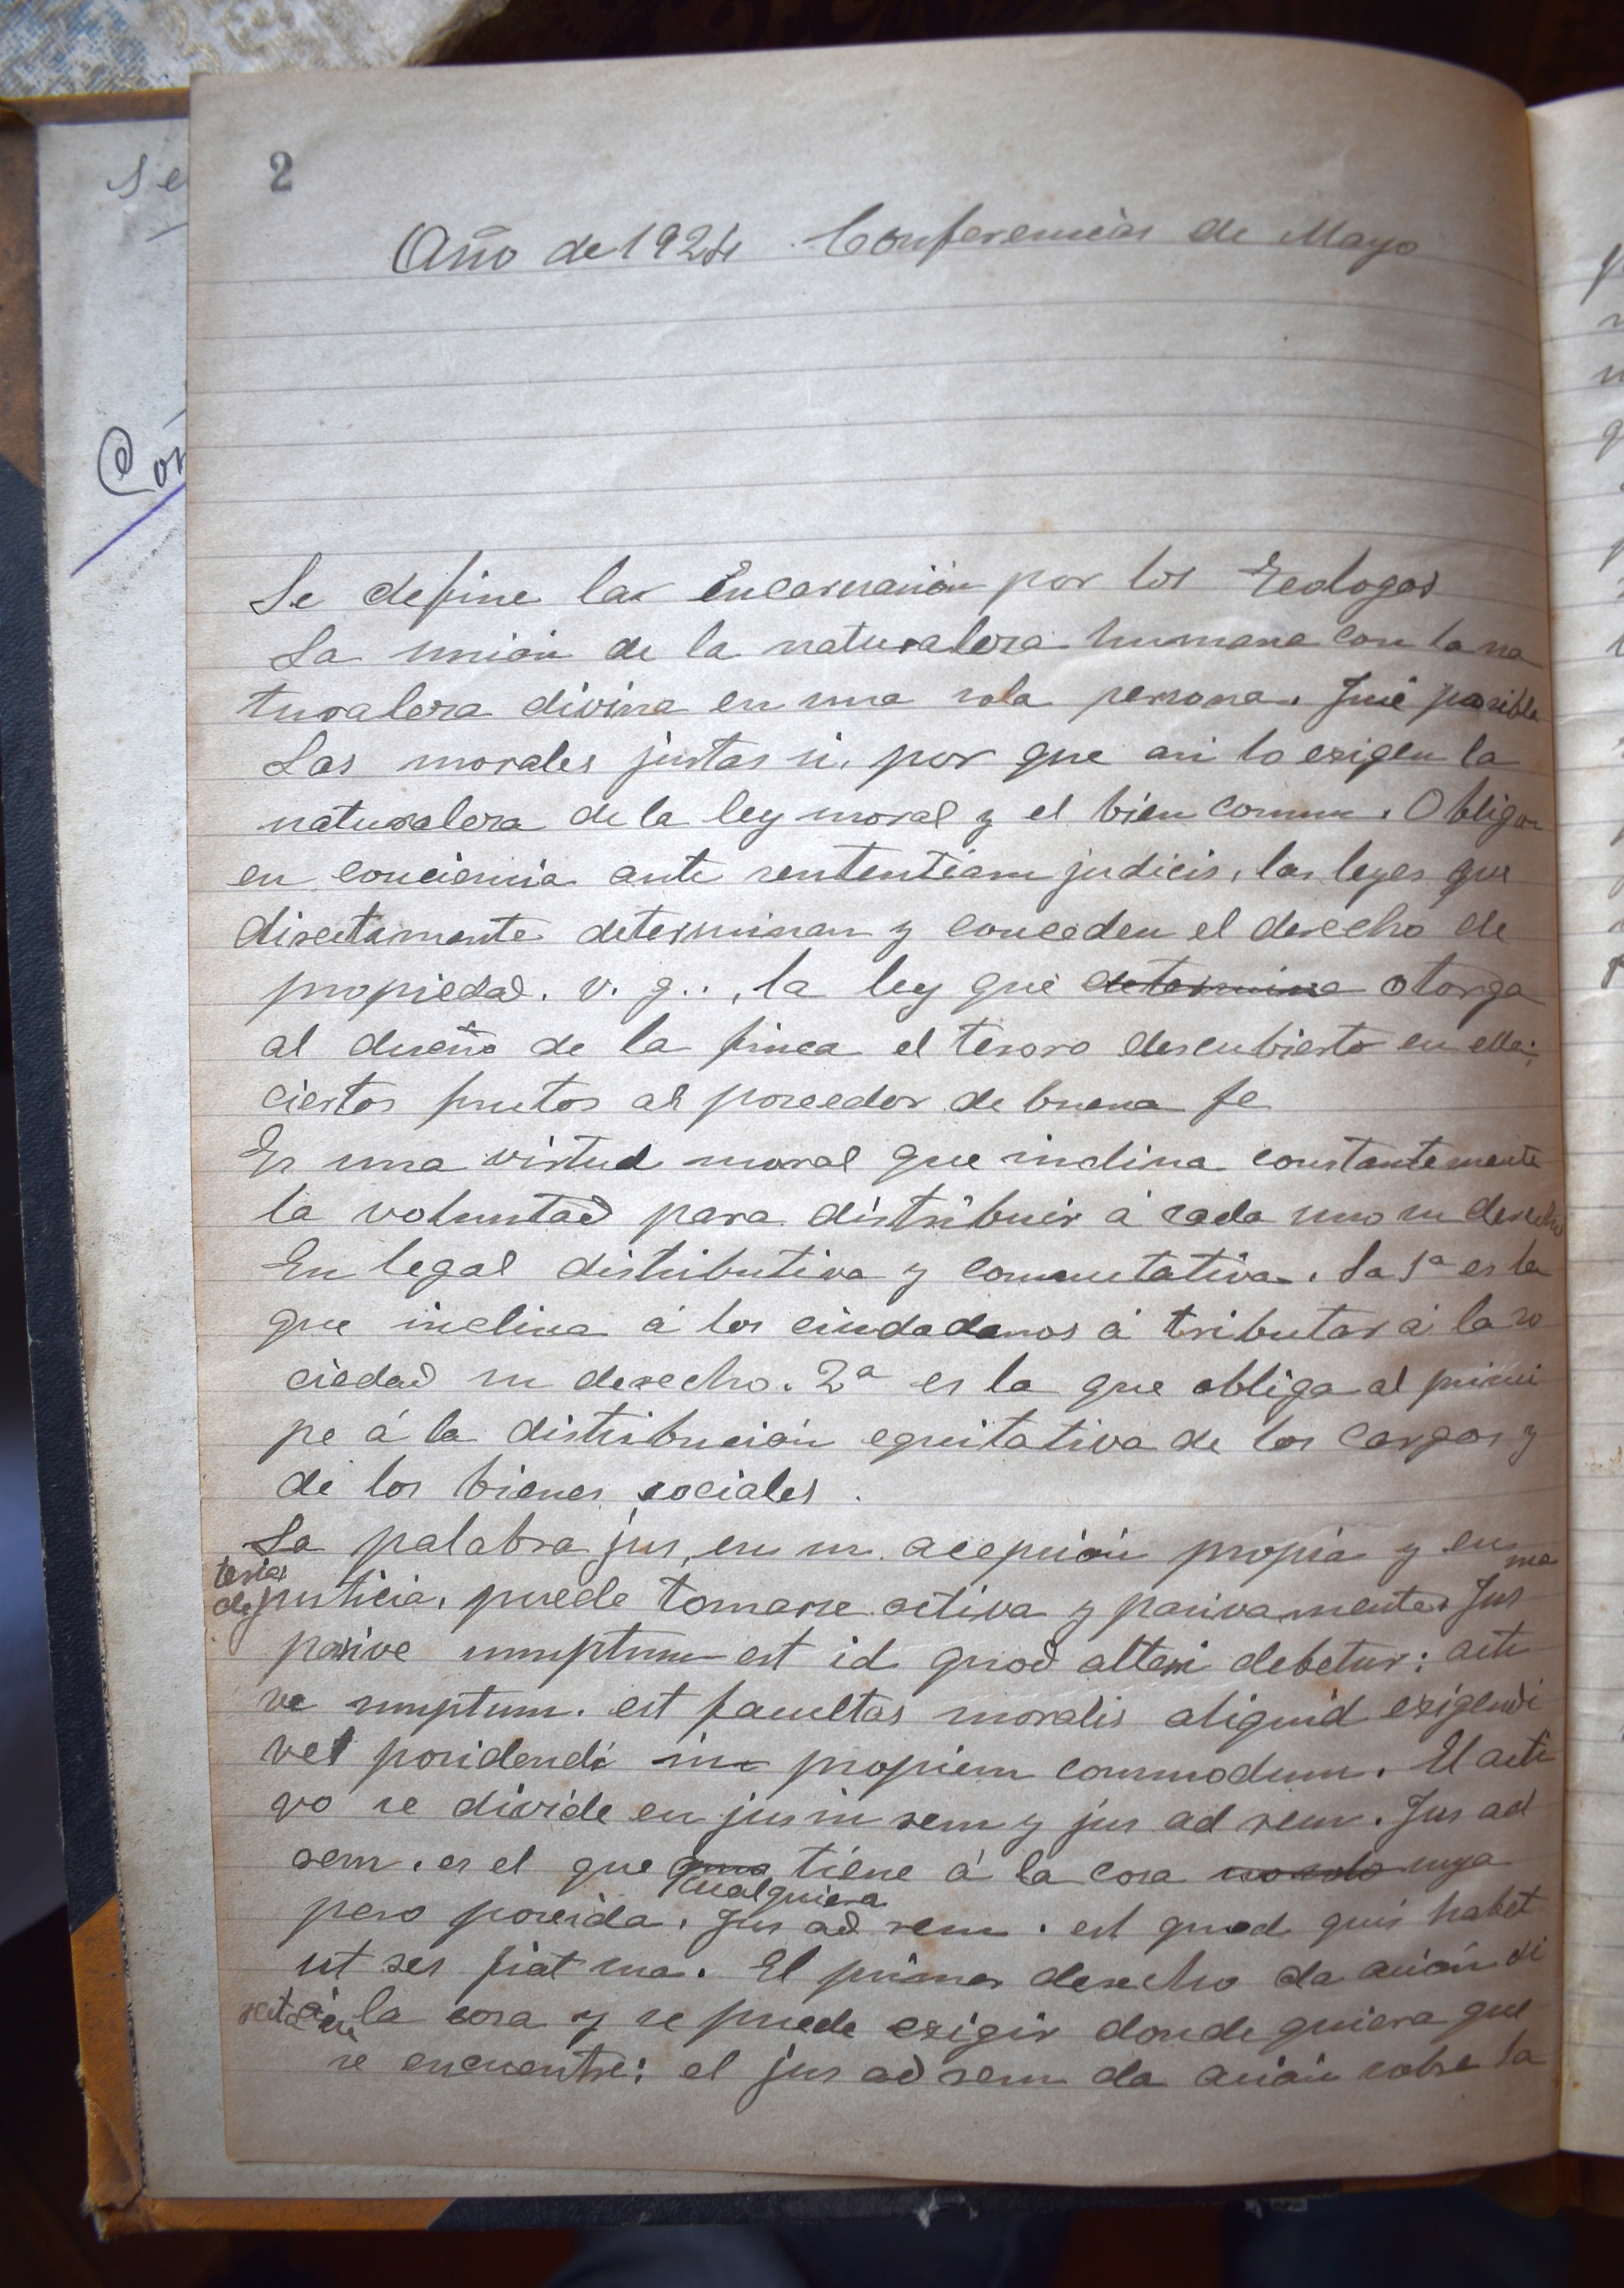 2
Año de 1924. Conferencias de Mayo
Se define la Encarnación por los Teologos
La unión de la naturaleza humana con la na
turaleza divina en una sola persona. Fué posible
Las morales justas si, por que asi lo exigen la
naturaleza de la ley moral y el bien comun. Obligan
en conciencia ante sententiam judicis, las leyes que
directamente determinan y conceden el derecho de
propiedad. v. g.., la ley que determina otorga
al dueño de la finca el tesoro descubierto en ella;
ciertos frutos al poseedor de buena fe
Es una virtud moral que inclina constantemente
la voluntad para distribuir á cada uno su derecho
En legal distributiva y conmutativa. La 1ª es la
que inclina á los ciudadanos á tributar á la so
ciedad su derecho. 2ª es la que obliga al princi
pe á la distribución equitativa de los cargos y
de los bienes sociales.
La palabra jus, en su acepción propia y en ma
teria de justicia, puede tomarse activa y pasivamente. Jus
pasive sumptum est id quod alteri debetur: acti
ve sumptum. est facultas moralis aliquid exigendi
vel posidendi in propium commodum. El acti
vo se divide en jus in rem y jus ad rem. Jus ad
rem. es el que cualquiera tiene á la cosa no solo suya
pero poseida. Jus ad rem. est quod quis habet
ut res fiat sua. El primer derecho da acción di
recta en la cosa y se puede exigir donde quiera que
se encuentre: el jus ad rem da acción sobre la
Se
Con